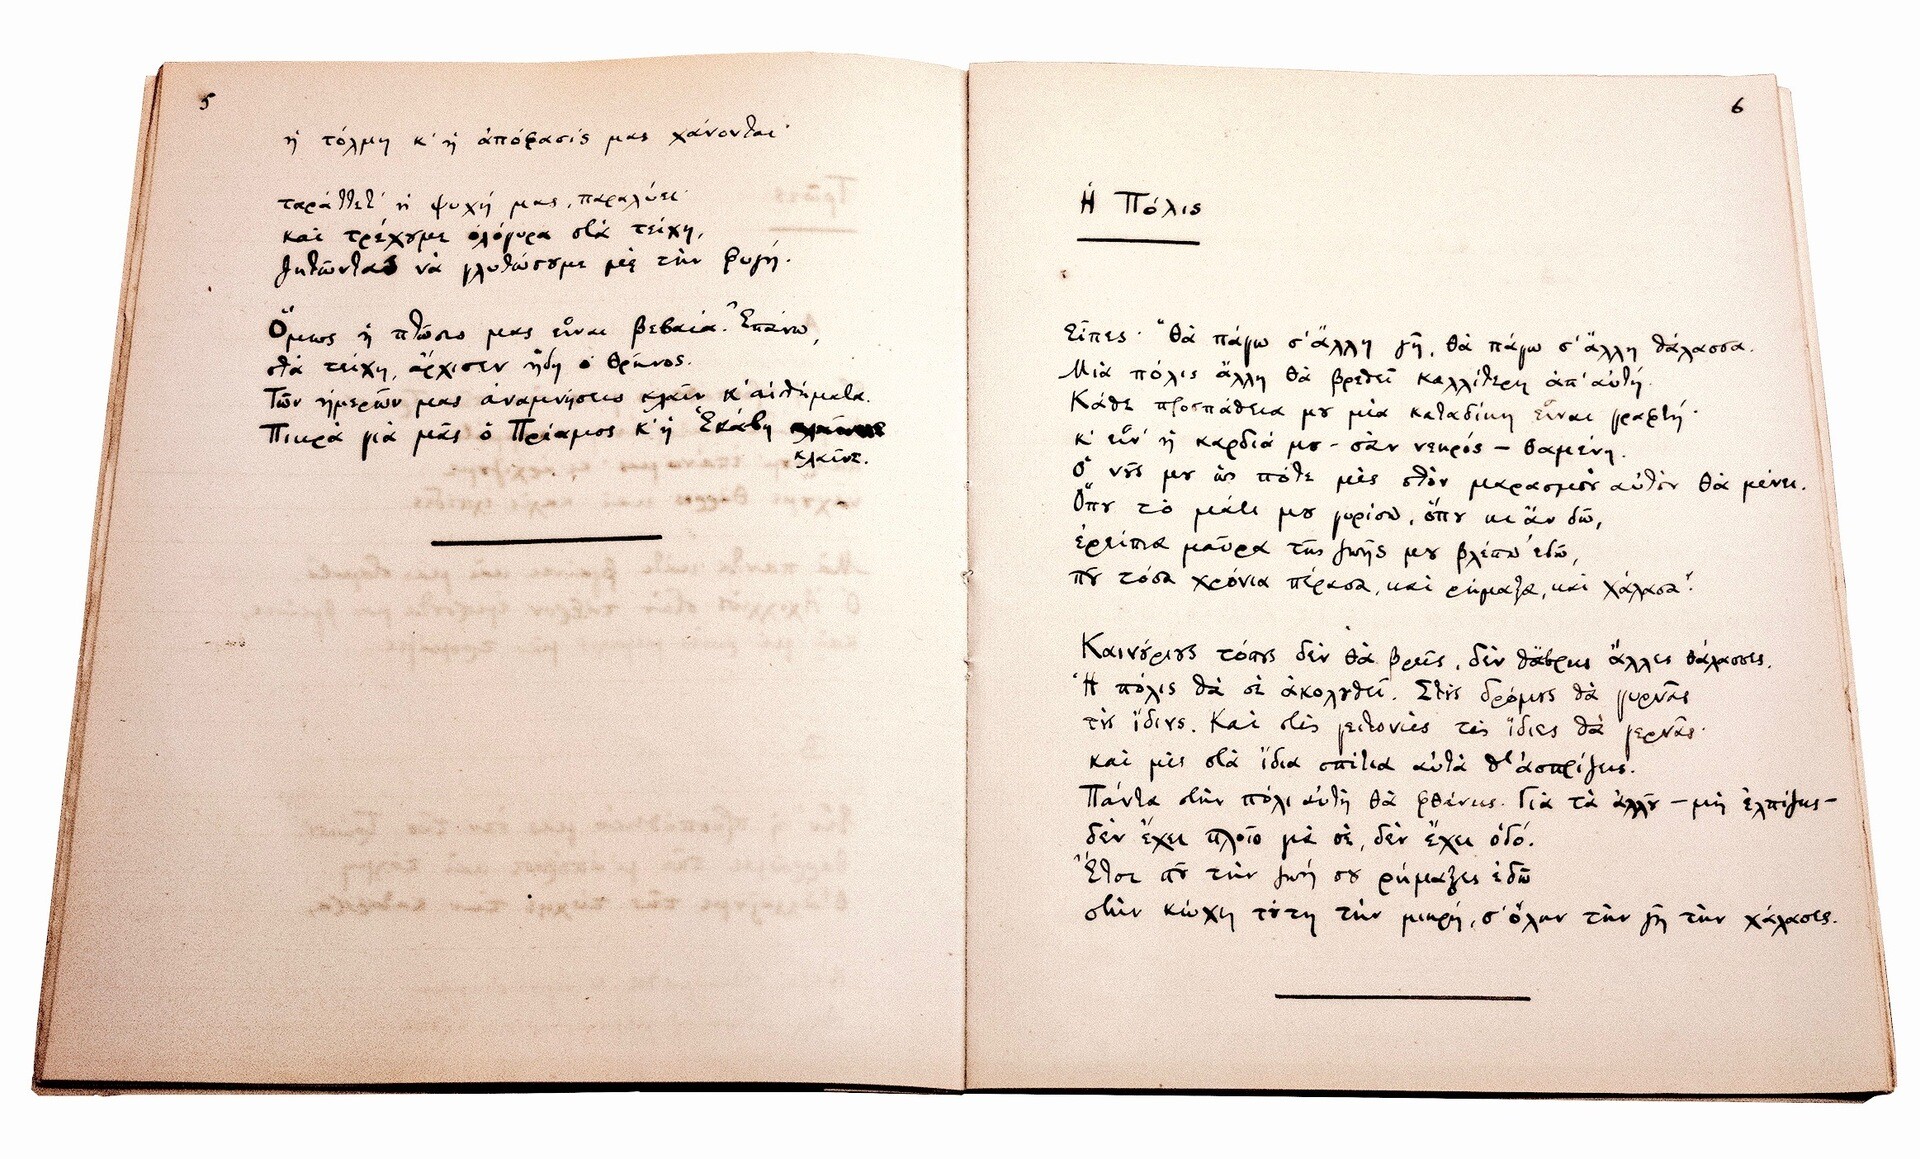 5
ἡ τόλμη κ' ἡ ἀπόφασίς μας χάνονται·
ταράττετ' ἡ ψυχή μας, παραλύει·
καὶ τρέχουμε ὁλόγυρα στὰ τείχη,
ζητῶντας νὰ γλυτώσουμε μὲ τὴν φυγή.
Ὅμως ἡ πτῶσις μας εἶναι βεβαία. Ἐπάνω,
στὰ τείχη, ἄρχισεν ἤδη ὁ θρῆνος.
Τῶν ἡμερῶν μας ἀναμνήσεις κλαῖν κ' αἰσθήματα.
Πικρὰ γιὰ μᾶς ὁ Πρίαμος κ' ἡ Ἑκάβη
κλαῖνε.
6
Ἡ Πόλις
Εἶπες· "Θὰ πάγω σ' ἄλλη γῆ, θὰ πάγω σ' ἄλλη θάλασσα.
Μιὰ πόλις ἄλλη θὰ βρεθεῖ καλλίτερη ἀπ' αὐτή.
Κάθε προσπάθεια μου μιὰ καταδίκη εἶναι γραφτή·
κ' εἶν' ἡ καρδιά μου - σὰν νεκρός - θαμένη.
Ὁ νοῦς μου ὡς πότε μὲς στὸν μαρασμὸν αὐτὸν θὰ μένει.
Ὅπου τὸ μάτι μου γυρίσω, ὅπου κι ἂν δῶ,
ἐρείπια μαῦρα τῆς ζωῆς μου βλέπω ἐδῶ,
ποῦ τόσα χρόνια πέρασα, καὶ ρήμαξα, καὶ χάλασα".
Καινούριους τόπους δὲν θὰ βρεῖς, δὲν θἄβρεις ἄλλες θάλασσες.
Ἡ πόλις θὰ σὲ ἀκολουθεῖ. Στοὺς δρόμους θὰ γυρνᾶς
τοὺς ἴδιους. Καὶ στὲς γειτονιὲς τὲς ἴδιες θὰ γερνᾶς·
καὶ μὲς στὰ ἴδια σπίτια αὐτὰ θ' ἀσπρίζεις.
Πάντα στὴν πόλι αὐτὴ θὰ φθάνεις. Γιὰ τὰ ἀλλοῦ - μὴ ἐλπίζεις -
δὲν ἔχει πλοῖο μὲ σέ, δὲν ἔχει ὁδό.
Ἔτσι ποῦ τὴν ζωή σου ρήμαξες ἐδῶ
στὴν κώχη τούτη τὴν μικρή, σ' ὅλην τὴν γῆ τὴν χάλασες.